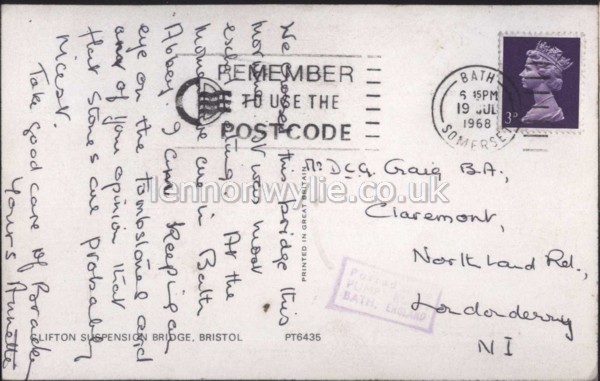 We crossed this bridge this
morning. It was most
exhilarating. At the
moment we are in Bath
Abbey. I am keeping an
eye on the tombstones and
am of your opinion that
flat stones are probably
nicest.
Take good care of
Yours Annette
CLIFTON SUSPENSION BRIDGE, BRISTOL PT6435
PRINTED IN GREAT BRITAIN
REMEMBER
TO USE THE
POSTCODE
BATH
6 15PM
19 JUL
1968
SOMERSET
3D
Mr D.C.G. Craig B.A.,
Claremont,
Northland Rd.,
Londonderry
N I
Posted
PUMP ROOM
BATH, ENGLAND
lennonwylie.co.uk